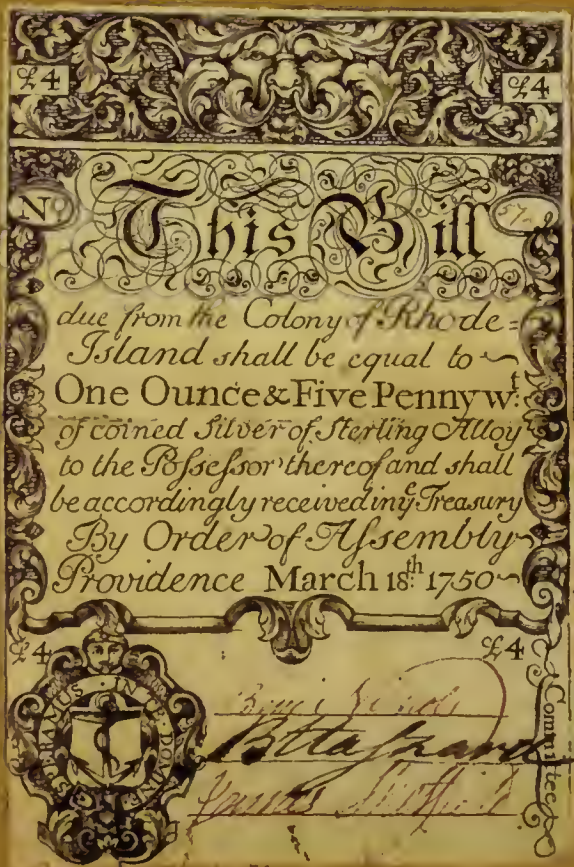 £4 £4
No 572
This Bill
due from the Colony of Rhode=
Island shall be equal to
One Ounce & Five Pennywt.
of coined Silver of Sterling Alloy
to the Poſseſsor thereof and shall
be accordingly received in ye Treasury
By Order of Aſsembly
Providence March 18th. 1750
£4 £4
IN TE DOMINE SPERAMUS
James Sheffield
Committee